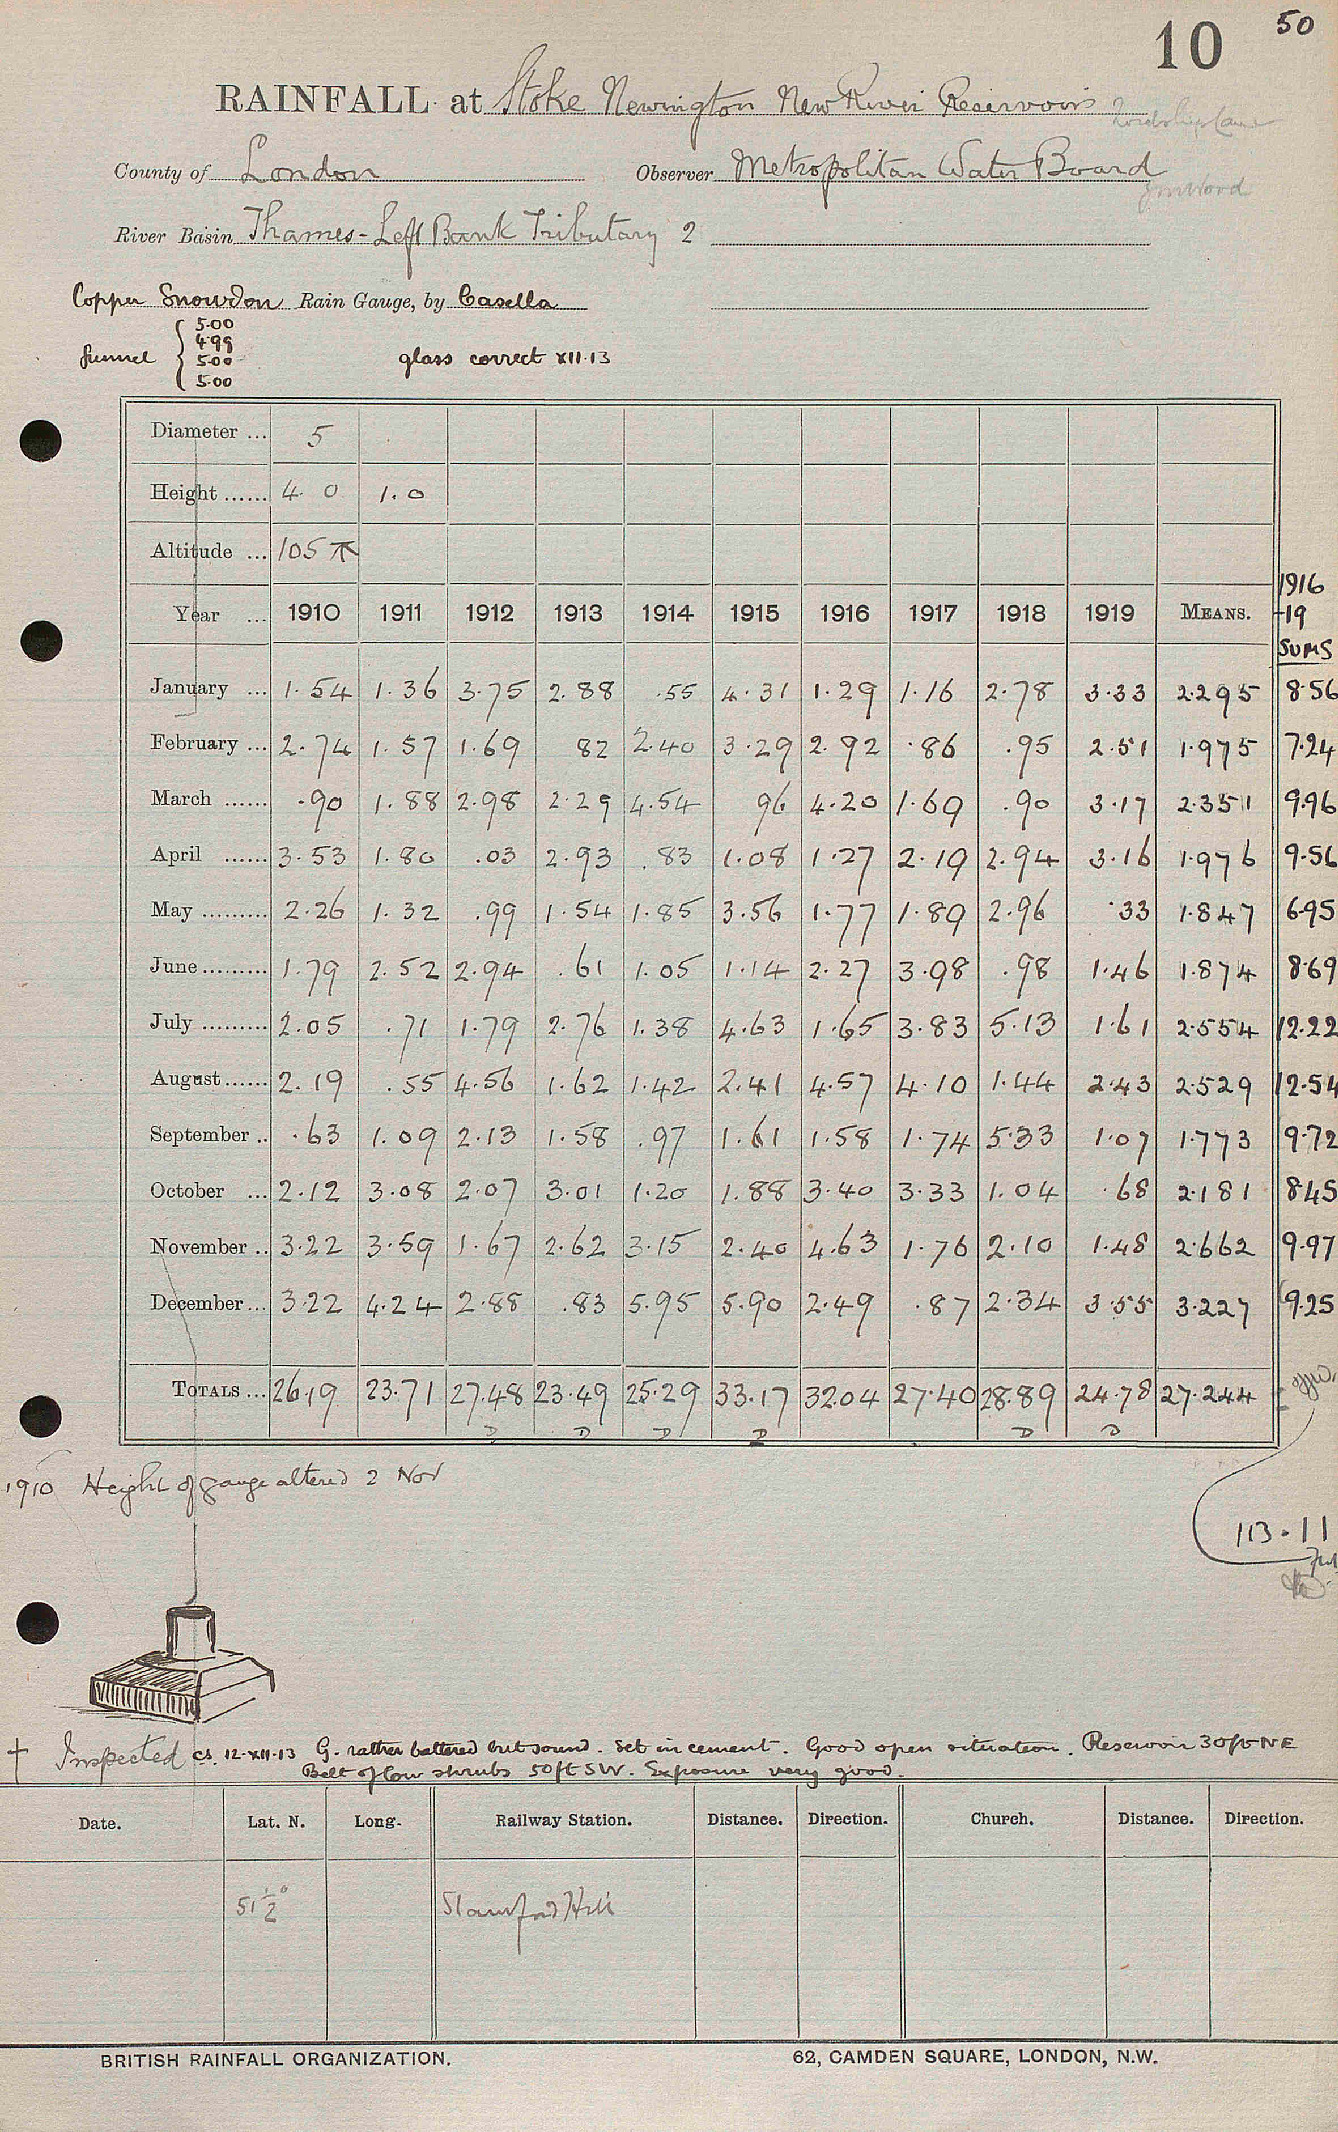 10 50
RAINFALL at Stoke Newington New River Reservoirs Lordship Lane
County of London Observer Metropolitan Water Board
River Basin Thames - Left Bank Tributary 2
Copper Snowdon Rain Gauge, by Casella
funnel { 5.00 4.99 5.00 5.00 glass correct XII.13
Diameter ... 5
Height ...... 4. 0 1. 0
Altitude ... 105
1916
Year ... 1910 1911 1912 1913 1914 1915 1916 1917 1918 1919 MEANS. -19
SUMS
January ... 1.54 1.36 3.75 2.88 .55 4.31 1.29 1.16 2.78 3.33 2.295 8.56
February ... 2.74 1.57 1.69 82 2.40 3.29 2.92 .86 .95 2.51 1.975 7.24
March ...... .90 1.88 2.98 2.29 4.54 96 4.20 1.69 .90 3.17 2.351 9.96
April ...... 3.53 1.80 .03 2.93 .83 1.08 1.27 2.19 2.94 3.16 1.976 9.56
May ......... 2.26 1.32 .99 1.54 1.85 3.56 1.77 1.89 2.96 .33 1.847 6.95
June ......... 1.79 2.52 2.94 .61 1.05 1.14 2.27 3.98 .98 1.46 1.874 8.69
July ......... 2.05 .71 1.79 2.76 1.38 4.63 1.65 3.83 5.13 1.61 2.554 12.22
August ...... 2.19 .55 4.56 1.62 1.42 2.41 4.57 4.10 1.44 2.43 2.529 12.54
September .. .63 1.09 2.13 1.58 .97 1.61 1.58 1.74 5.33 1.07 1.773 9.72
October ... 2.12 3.08 2.07 3.01 1.20 1.88 3.40 3.33 1.04 .68 2.181 8.45
November .. 3.22 3.59 1.67 2.62 3.15 2.40 4.63 1.76 2.10 1.48 2.662 9.97
December ... 3.22 4.24 2.88 .83 5.95 5.90 2.49 .87 2.34 3.55 3.227 9.25
TOTALS ... 26.19 23.71 27.48 23.49 25.29 33.17 32.04 27.40 28.89 24.78 27.244
D D D D D D
1910 Height of gauge altered 2 Nov
113.11
† Inspected CS. 12-XII-13 G. rather battered but sound. Set in cement. Good open situation. Reservoir 30ft NE
Belt of low shrubs 50ft SW. Exposure very good.
Date. Lat. N. Long. Railway Station. Distance. Direction. Church. Distance. Direction.
51 1/2° Stamford Hill
BRITISH RAINFALL ORGANIZATION. 62, CAMDEN SQUARE, LONDON, N.W.